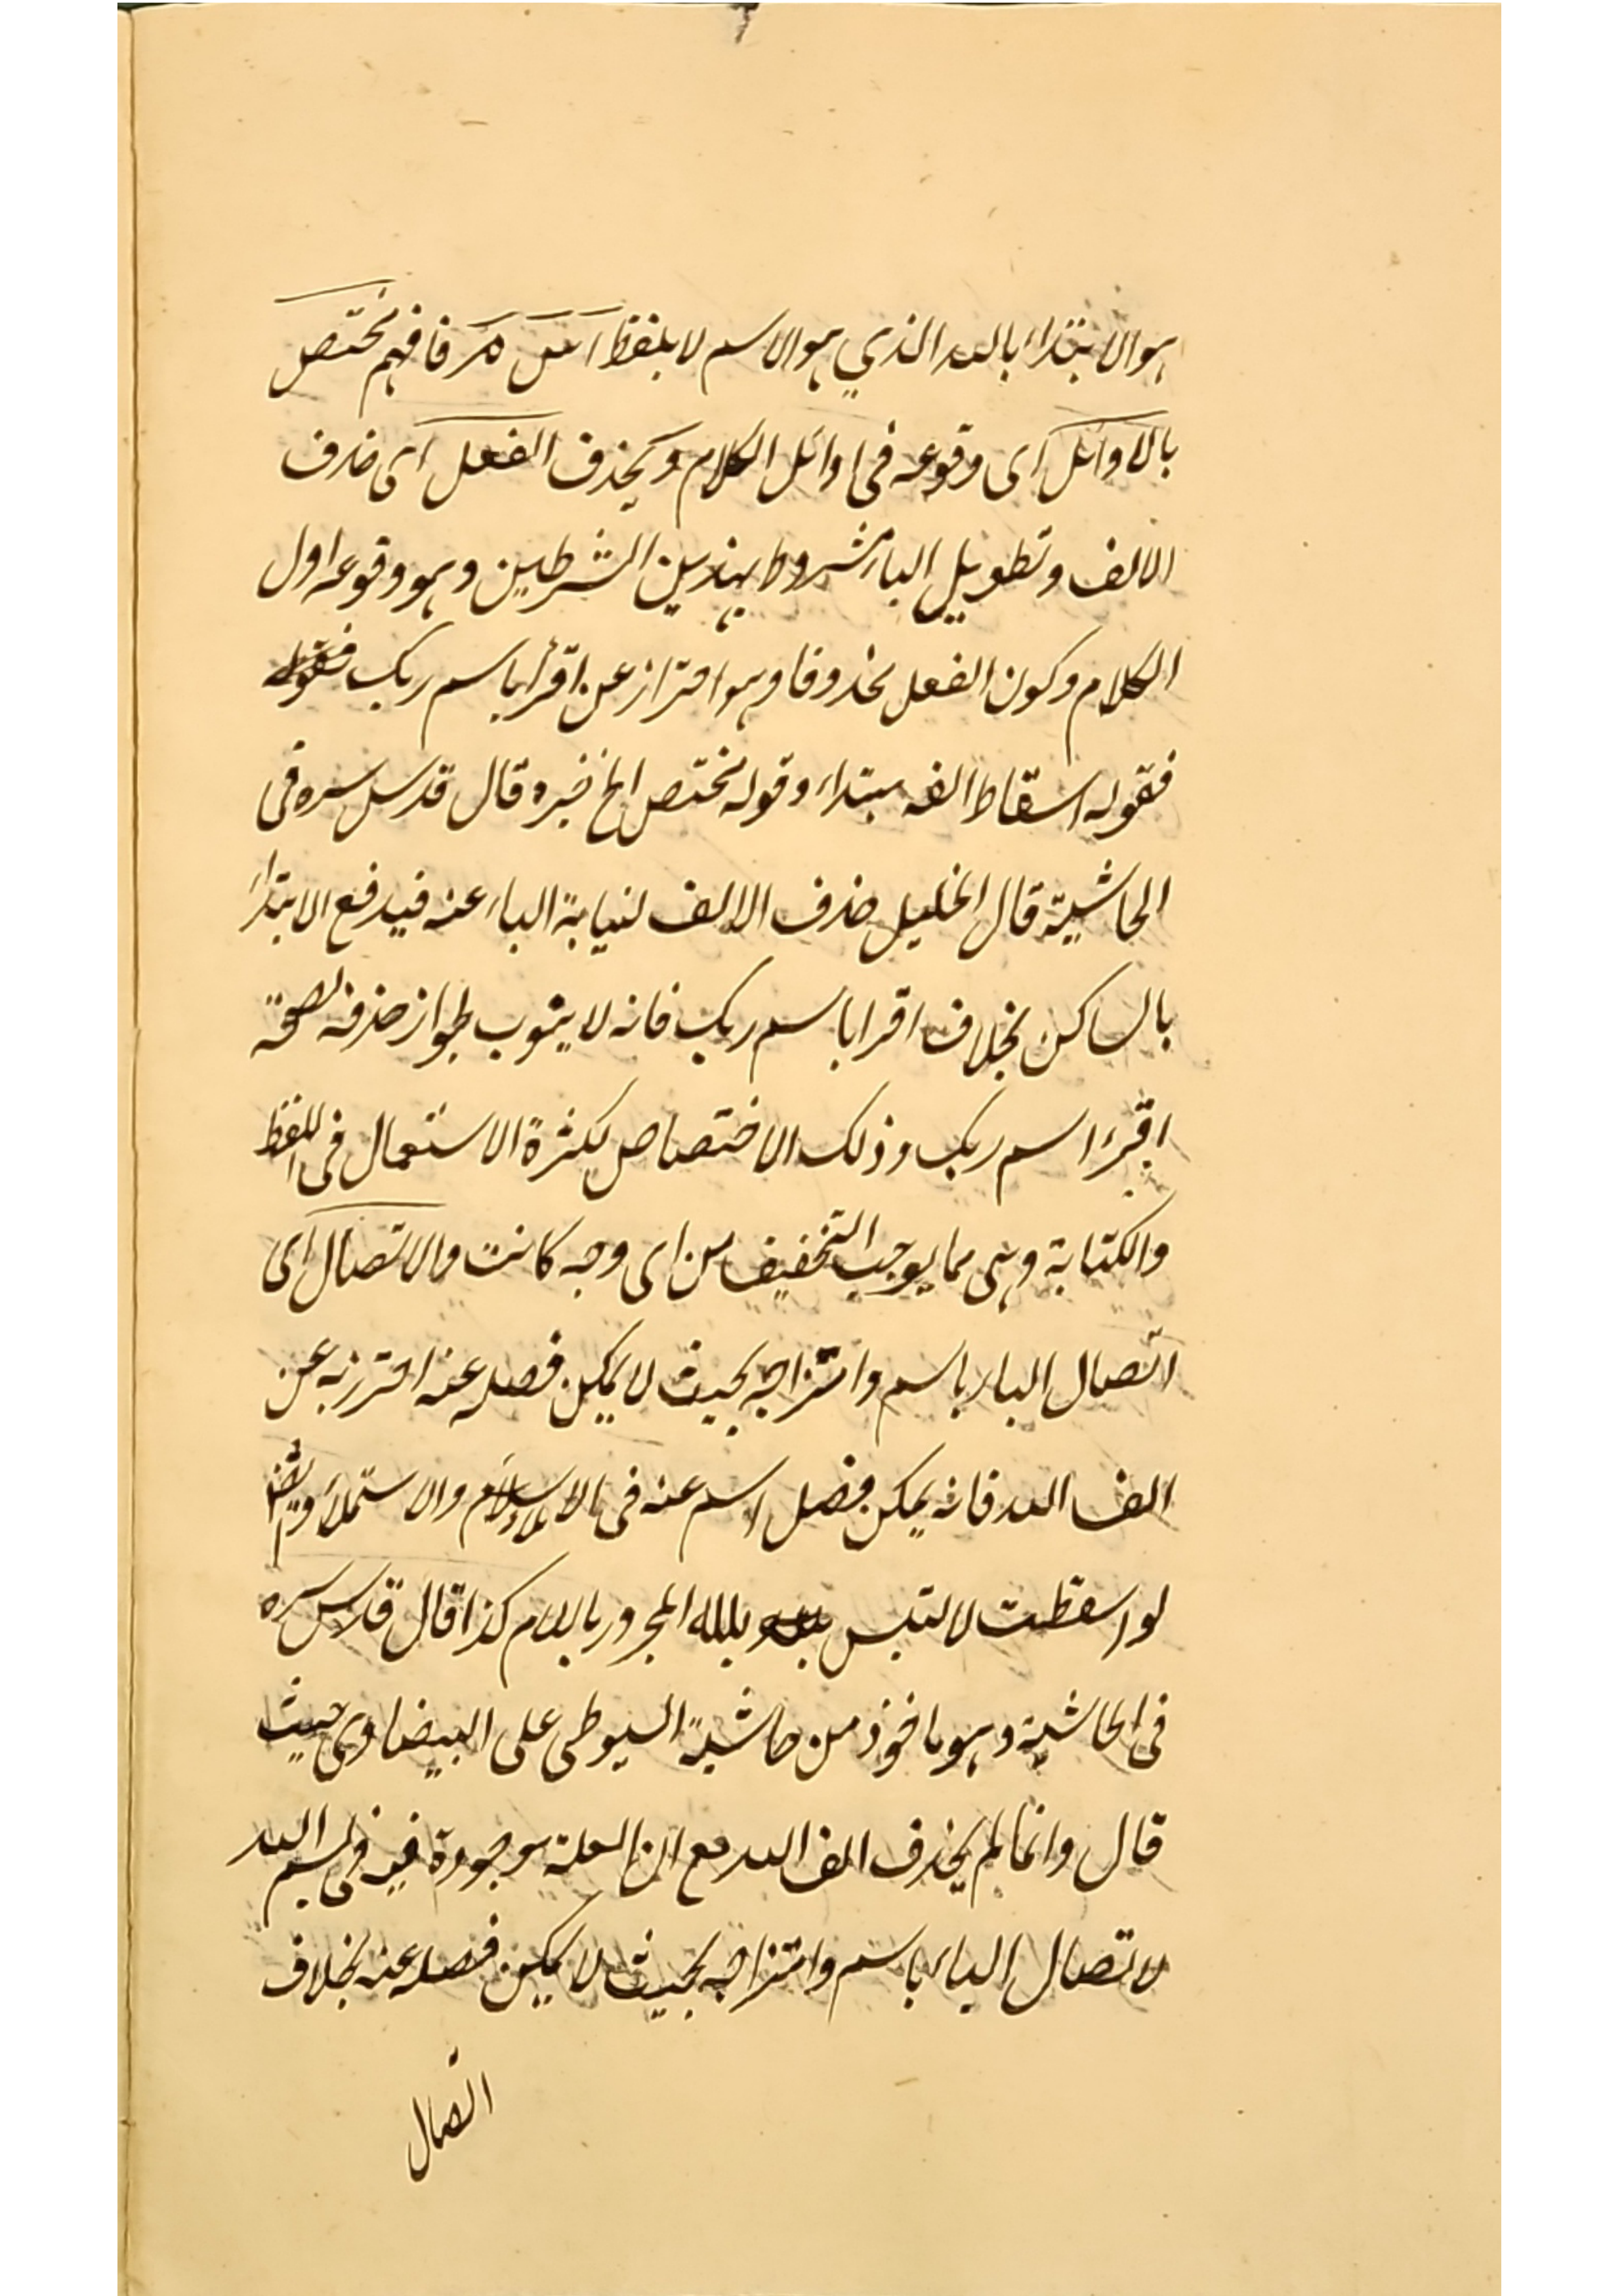 هو الابتداء بالله الذي هو الاسم لا بلفظ فافهم مختص
بالاوائل اى وقوعه فى اوائل الكلام وبحذف الفعل اى حذف
الالف وتطويل الباء مشروط بهذين الشرطين وهو وقوعه اول
الكلام وكون الفعل محذوفا وهو احتراز عن اقرأ باسم ربك
فقوله اسقاط الفه مبتداء وقوله مختص الخ خبره قال قدس سره فى
الحاشية قال الخليل حذف الالف لنيابة الباء عنه فيدفع الابتداء
بالساكن بخلاف اقرا باسم ربك فانه لا ينوب لجواز حذفه لصحة
اقرء اسم ربك وذلك الاختصاص لكثرة الاستعمال فى اللفظ
والكتابة وهى مما يوجب التخفيف من اى وجه كانت والاتصال اى
اتصال الباء باسم وامتزاجه بحيث لا يمكن فصله عنه احترز به عن
الف الله فانه يمكن فصل اسم عنه فى الاسلام والاستملاء وايضا
لو اسقطت لالتبس بلله المجرور باللام كذا قال قدس سره
فى الحاشية وهو ماخوذ من حاشية السيوطى على البيضاوى حيث
قال وانما لم يحذف الف الله مع ان العلة موجودة فيه فى بسم الله
لاتصال الباء باسم وامتزاجه بحيث لا يمكن فصله عنه بخلاف
اتصال